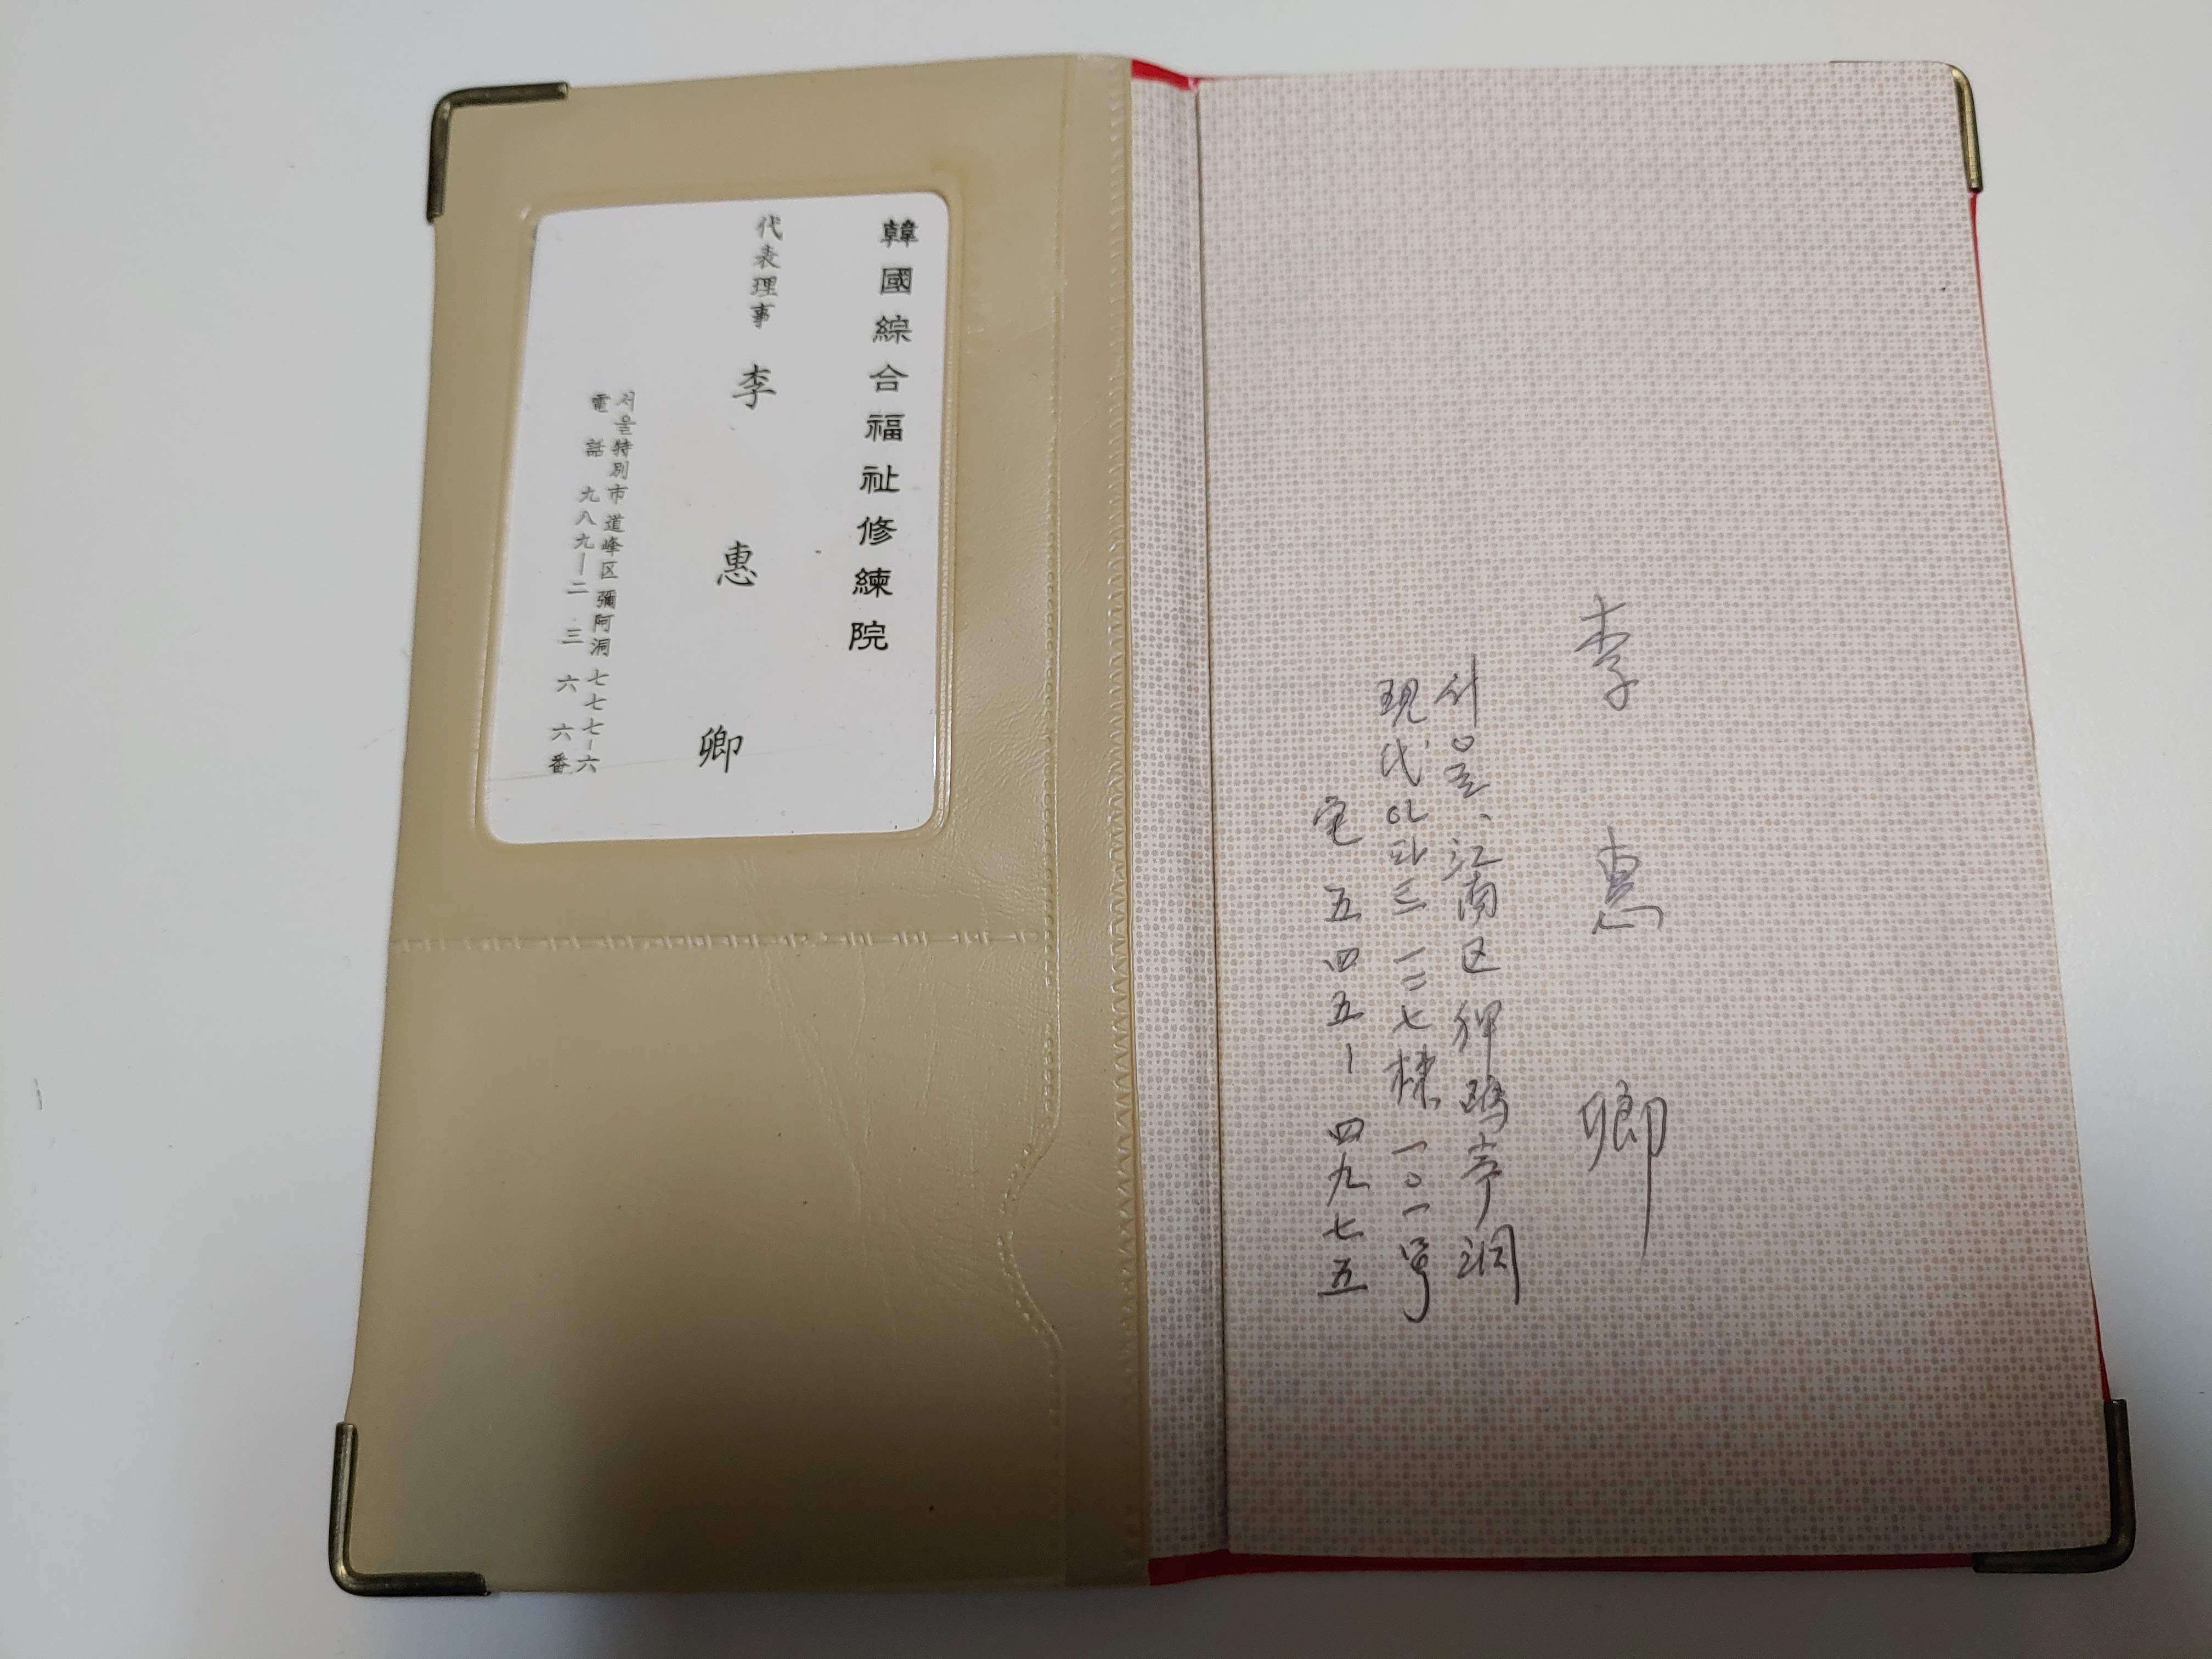 韓國綜合福祉修練院
代表理事 李惠卿
서울特別市道峰区彌阿洞 七七七-六
電話 九八九-二三六六番
李惠卿
서울、江南区狎鷗亭洞
現代아파트 一二七棟 一〇一号
宅 五四五-四九七五